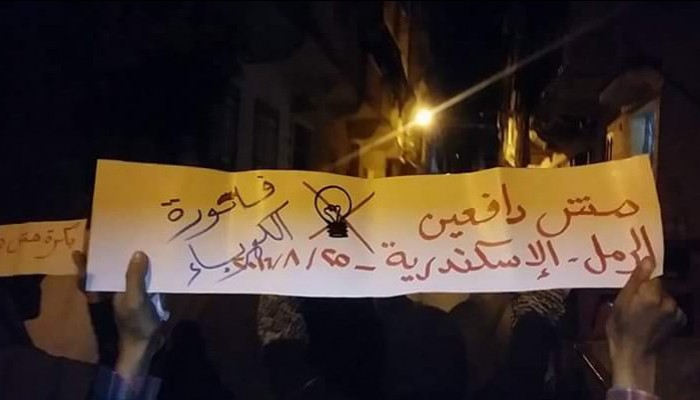 مش دافعين
فاتورة
الكهرباء
الرمل - الإسكندرية - ٢٥ / ٨ /
بكرة مش